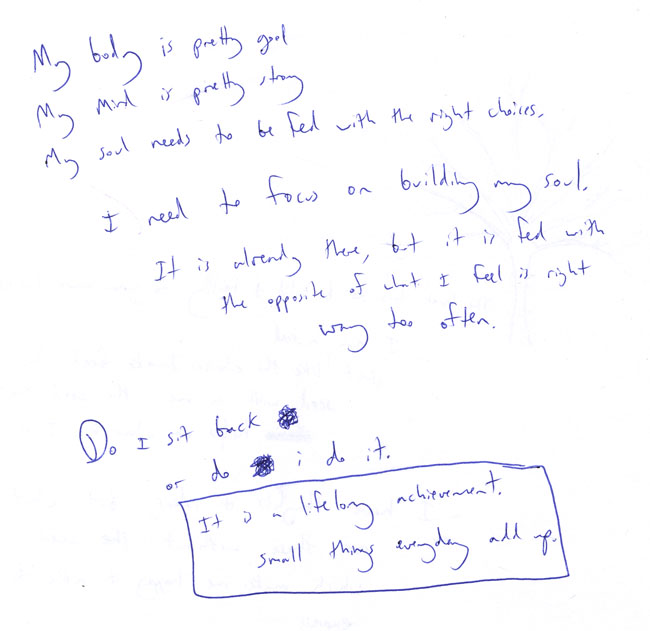 My body is pretty good
My mind is pretty strong
My soul needs to be fed with the right choices.
I need to focus on building my soul.
It is already there, but it is fed with
the opposite of what I feel is right
way too often.
Do I sit back
or do i do it.
It is a lifelong achievement.
small things everyday add up.